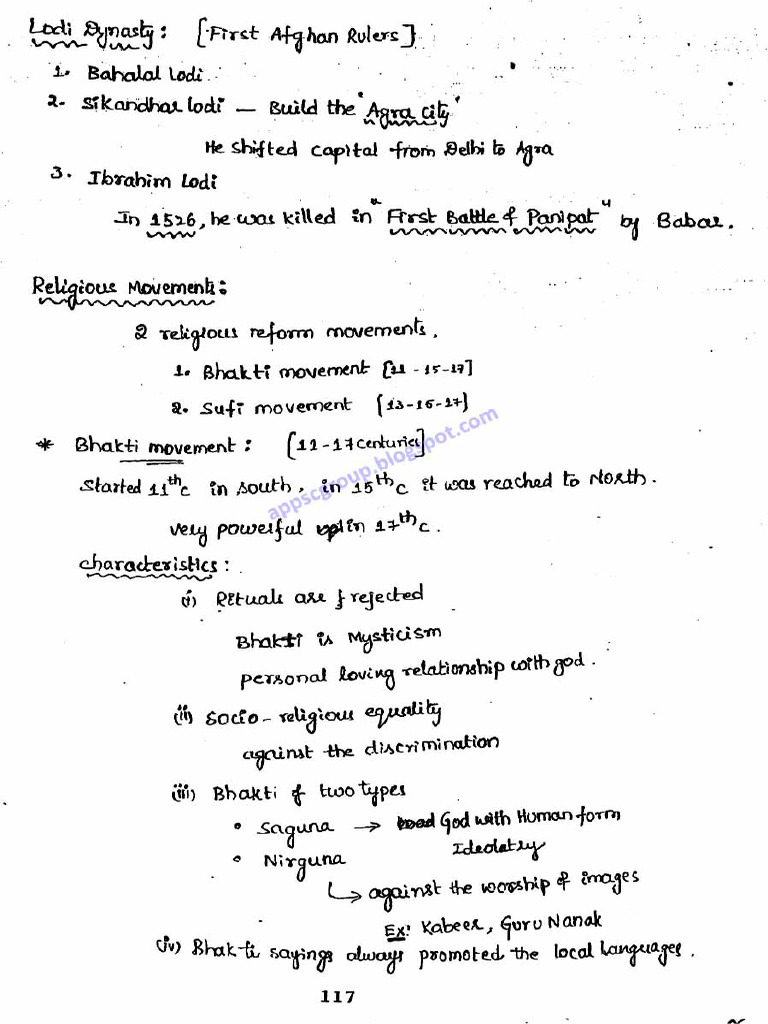 Lodi Dynasty: [First Afghan Rulers]
1. Bahalal Lodi.
2. Sikandhar lodi — Build the "Agra city"
He shifted capital from Delhi to Agra
3. Ibrahim Lodi
In 1526, he was killed in "First Battle of Panipat" by Babar.
Religious Movements:
2 religious reform movements.
1. Bhakti movement [11-15-17]
2. Sufi movement [13-16-17]
* Bhakti movement: [11-17 centuries]
Started 11th c in south, in 15th c it was reached to North.
very powerful in 17th c.
characteristics:
(i) Rituals are rejected
Bhakti is Mysticism
personal loving relationship with god.
(ii) Socio-religious equality
against the discrimination
(iii) Bhakti of two types
• Saguna → God with Human form
Ideolatry
• Nirguna
↳ against the worship of images
Ex: Kabeer, Guru Nanak
(iv) Bhakti sayings always promoted the local languages.
117
appscgroup.blogspot.com